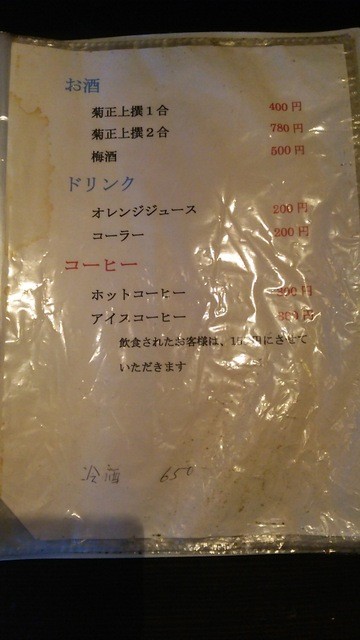 お酒
菊正上撰1合 400円
菊正上撰2合 780円
梅酒 500円
ドリンク
オレンジジュース 200円
コーラー 200円
コーヒー
ホットコーヒー 300円
アイスコーヒー 300円
飲食されたお客様は、15 円にさせて
いただきます
冷酒 650